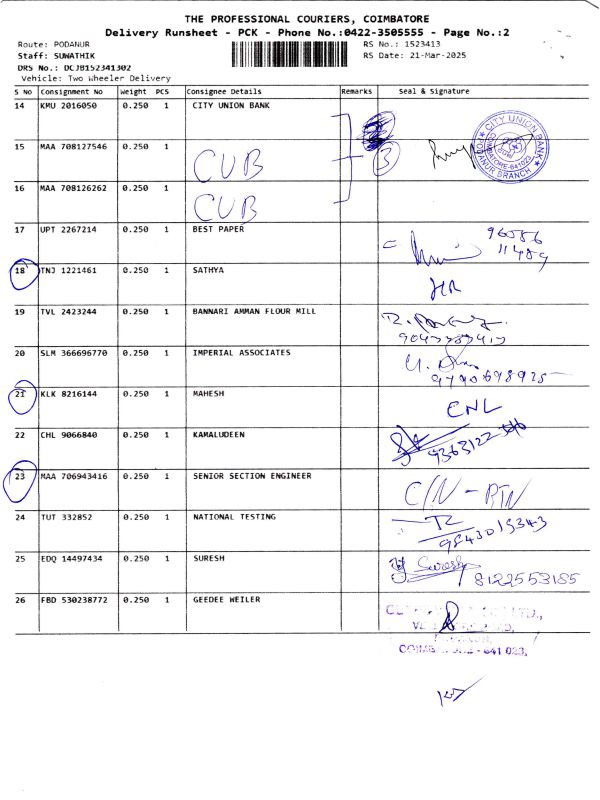 THE PROFESSIONAL COURIERS, COIMBATORE
Delivery Runsheet - PCK - Phone No.:0422-3505555 - Page No.:2
Route: PODANUR RS No.: 1523413
Staff: SUWATHIK RS Date: 21-Mar-2025
DRS No.: DCJB152341302
Vehicle: Two Wheeler Delivery
S NO Consignment No Weight PCS Consignee Details Remarks Seal & Signature
14 KMU 2016050 0.250 1 CITY UNION BANK
15 MAA 708127546 0.250 1 CUB 3
CITY UNION BANK
COIMBATORE-641023
PODANUR BRANCH
16 MAA 708126262 0.250 1 CUB
17 UPT 2267214 0.250 1 BEST PAPER
18 TNJ 1221461 0.250 1 SATHYA
19 TVL 2423244 0.250 1 BANNARI AMMAN FLOUR MILL
20 SLM 366696770 0.250 1 IMPERIAL ASSOCIATES
21 KLK 8216144 0.250 1 MAHESH CNL
22 CHL 9066840 0.250 1 KAMALUDEEN
23 MAA 706943416 0.250 1 SENIOR SECTION ENGINEER C/N - RTN
24 TUT 332852 0.250 1 NATIONAL TESTING
9843015343
25 EDQ 14497434 0.250 1 SURESH Suresh
8122553185
26 FBD 530238772 0.250 1 GEEDEE WEILER
LTD.,
COIMBATORE - 641 023.